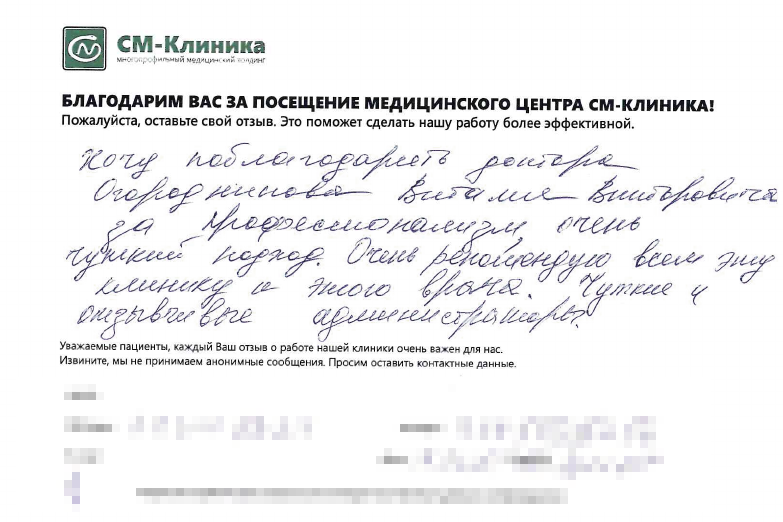 СМ-Клиника
многопрофильный медицинский холдинг
БЛАГОДАРИМ ВАС ЗА ПОСЕЩЕНИЕ МЕДИЦИНСКОГО ЦЕНТРА СМ-КЛИНИКА!
Пожалуйста, оставьте свой отзыв. Это поможет сделать нашу работу более эффективной.
Хочу поблагодарить доктора
Огородникова Виталия Викторовича
за профессионализм, очень
чуткий подход. Очень рекомендую всем эту
клинику и этого врача. Чуткие и
отзывчивые администраторы.
Уважаемые пациенты, каждый Ваш отзыв о работе нашей клиники очень важен для нас.
Извините, мы не принимаем анонимные сообщения. Просим оставить контактные данные.